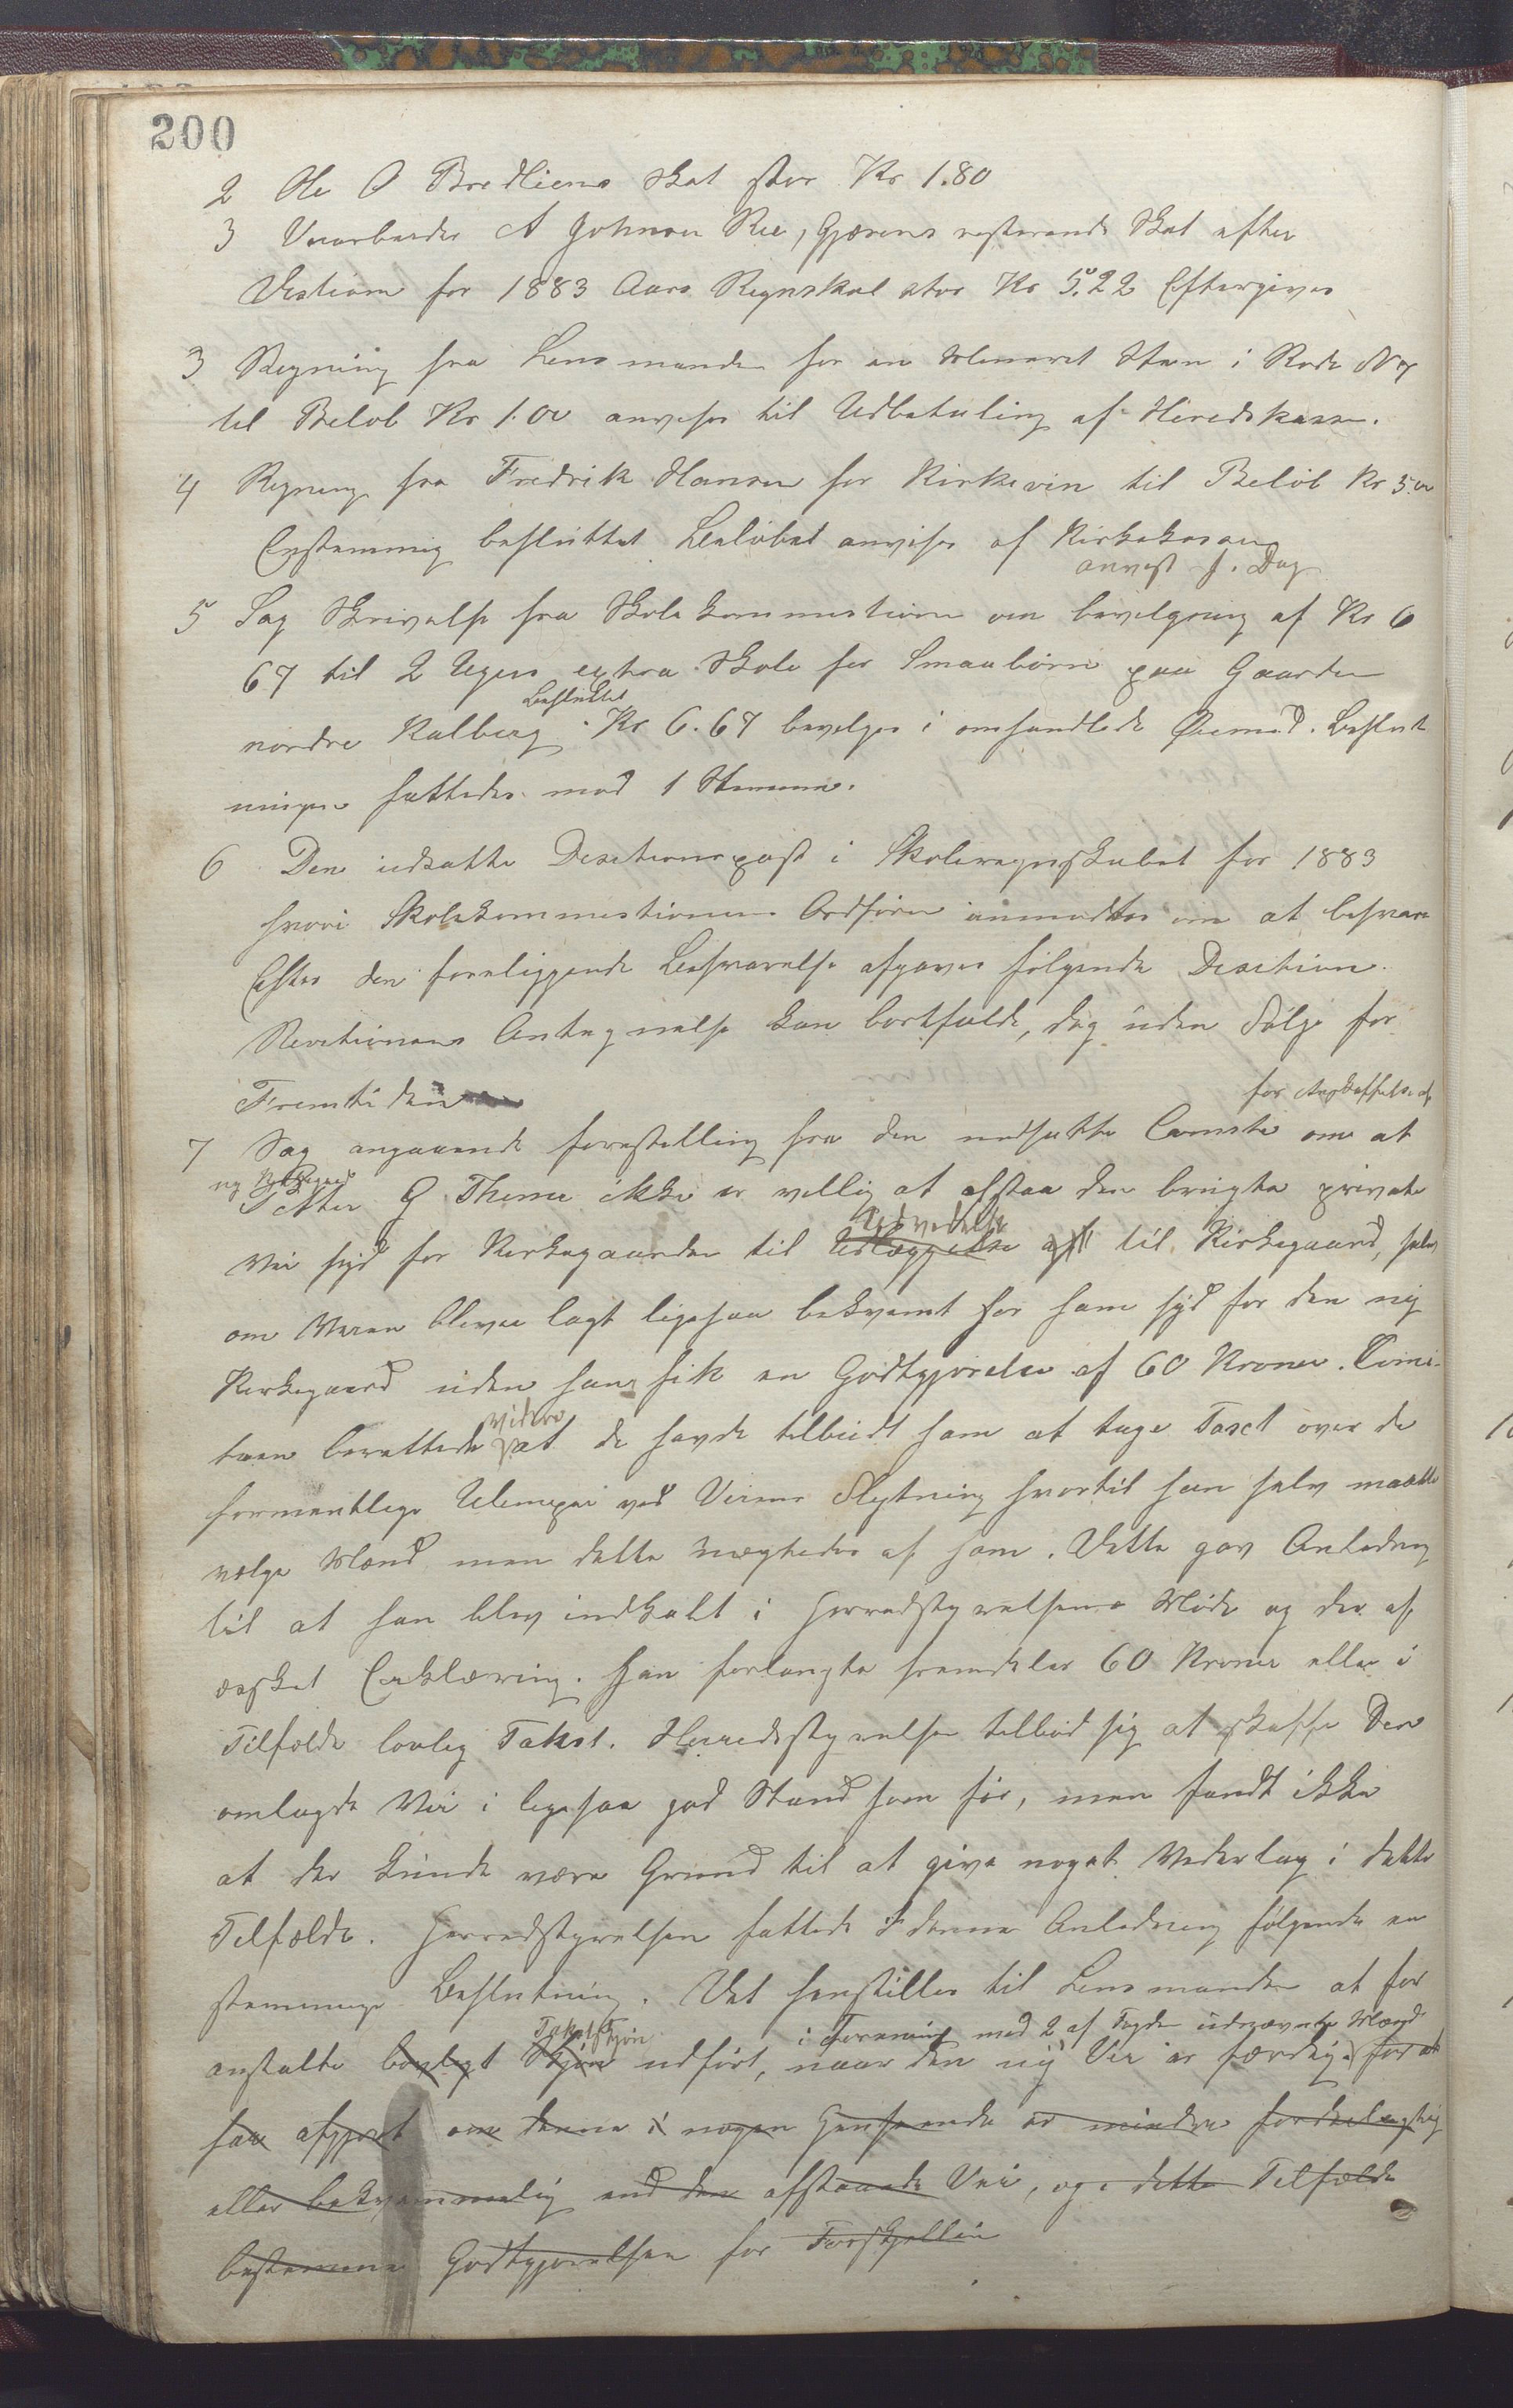 200
2 Ole O Bredliens Skat stor Kr 1.80
3 A Johnsen Ree, Gjærens resterende Skat efter
for 1883 Aars Regnskab stor Kr 5.22 Eftergives
3 Regning fra Lensmanden for en Sten i Rode No 7
til Beløb Kr 1.00 anvises til Udbetaling af Heredskassen.
4 Regning fra Fredrik Hansen for Kirkevin til Beløb Kr 5.00
Enstemmig besluttet Beløbet anvises af Kirkekassen
anvist s. Dag
5 Sag Skrivelse fra Skolekommistionen om bevilgning af Kr 6
67 til 2 Ugers extra Skole for Smaabørn paa Gaarden
Besluttet
nordre Kalberg. Kr 6.67 bevilges i omhandlede Øiemed. Beslut
ningen fattedes mod 1 Stemme.
6 Den udsatte Desitionspost i Skoleregnskabet for 1883
hvori Skolekommistionens Ordfører anmodtes om at besvare
Efter den foreliggende Besvarelse afgaves følgende Desition.
Revitionens Antegnelse kan bortfalde, dog uden Følge for
Fremtiden
for Anskaffelse af
7 Sag angaaende forestilling fra den nedsatte Comite om at
ny Kirkegaard
Peter G Thime ikke er vellig at afstaa den brugte private
Udvidelse
Vei syd for Kirkegaarden til Udlæggelse af til Kirkegaard, selv
om Veien blever lagt ligesaa bekvemt for ham syd for den ny
Kirkegaard uden han fik en Godtgjørelse af 60 Kroner. Comi-
videre
teen berettede at de havde tilbudt ham at tage Taxt over de
formentlige Ulemper ved Veiens Flytning hvortil han selv maatte
vælge Mænd men dette nægtedes af ham. Dette gav Anledning
til at han blev indkaldt i Herredsstyrelsens Møde og der af
æsket Erklæring. Han forlangte fremdeles 60 Kroner eller i
Tilfælde lovlig Takst. Herredsstyrelsen tilbød sig at skaffe Den
omlagde Vei i ligesaa god Stand som før, men fandt ikke
at der kunde være Grund til at give noget Vederlag i dette
Tilfælde. Herredsstyrelsen fattede i denne Anledning følgende en
stemmige Beslutning. Det henstilles til Lensmanden at for
Takst Skjøn i Forening med 2 af Fogden udnævnte Mænd
anstalte lovligt Skjøn udført, naar den ny Vei er færdig. for at
faa afgjort om denne i nogen Henseende er mindre fordelagtig
eller bekvemmelig end den afstaaede Vei, og i dette Tilfælde
bestemme Godtgjørelsen for Forskjellen